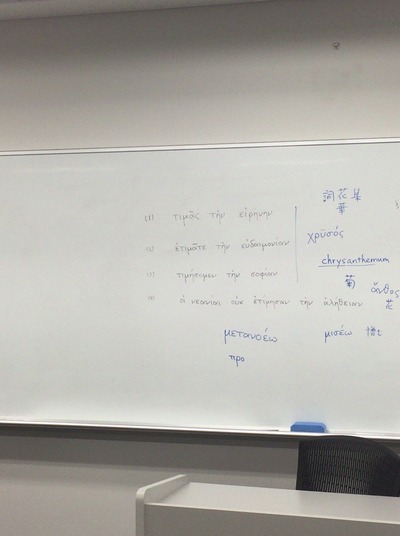 (1) τιμᾷς τὴν εἰρήνην
(2) ἐτιμᾶτε τὴν εὐδαιμονίαν
(3) τιμήσομεν τὴν σοφίαν
(4) οἱ νεανίαι οὐκ ἐτίμησαν τὴν ἀλήθειαν
詞花集
華
χρῡσός
chrysanthemum
菊
ἄνθος
花
μετανοέω
προ
μισέω